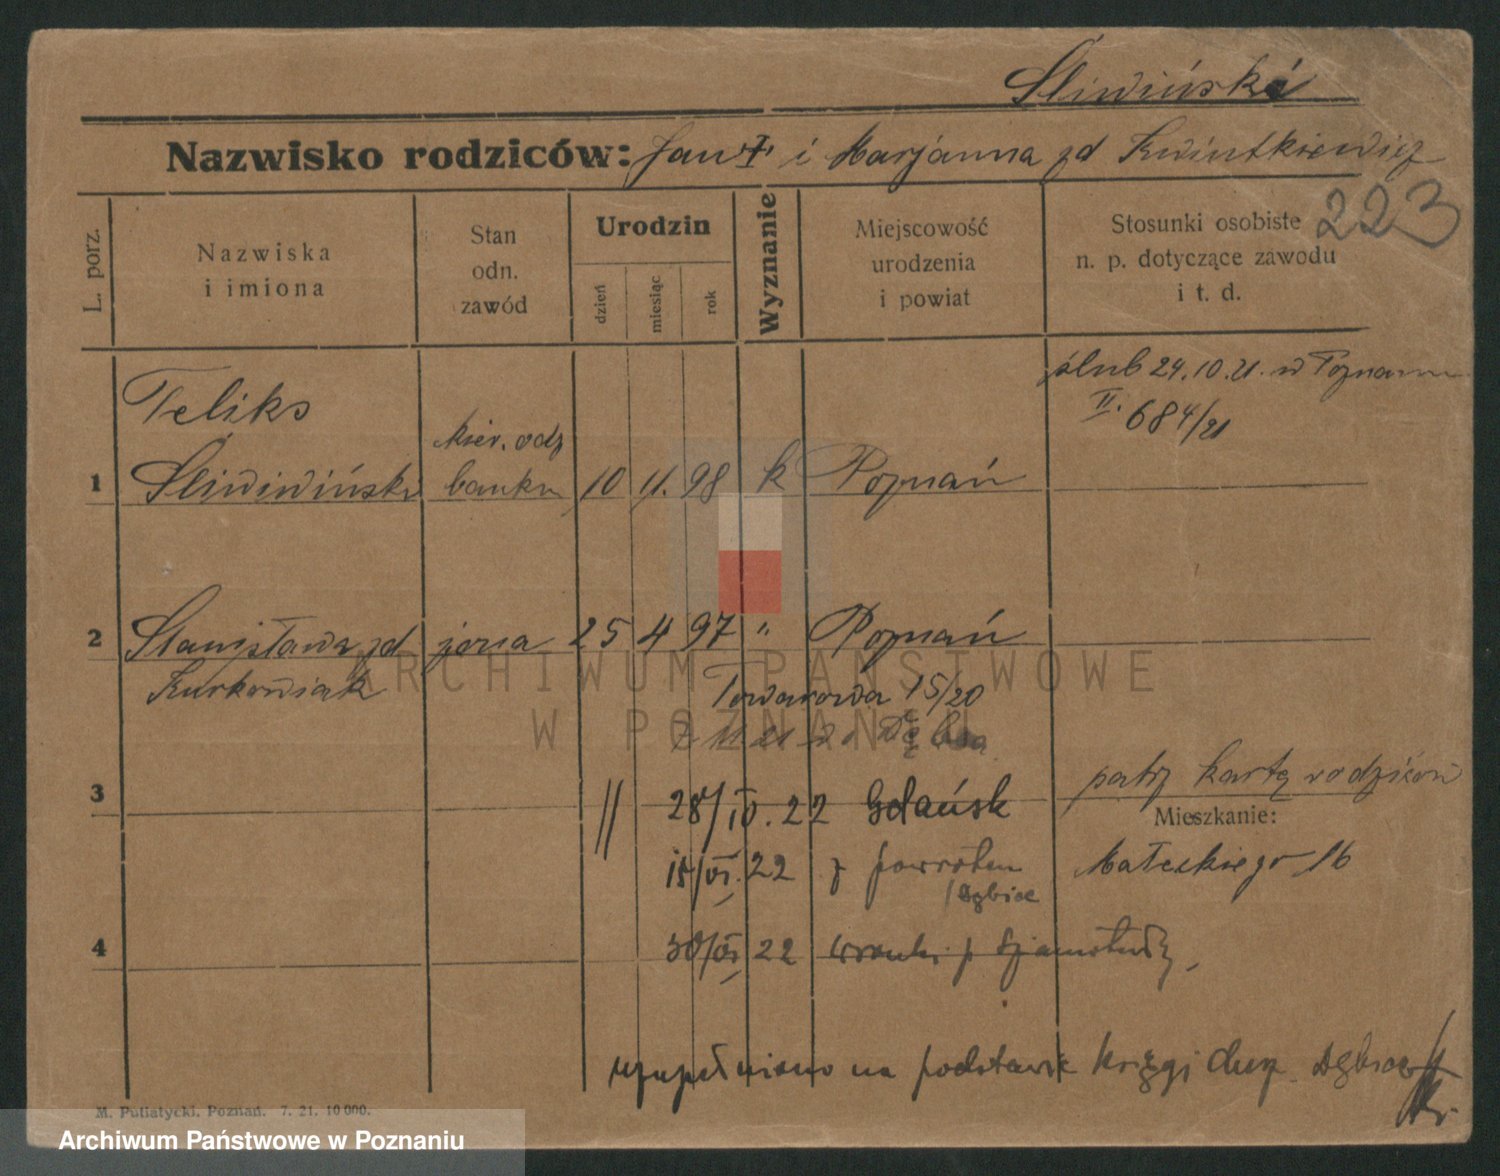 Śliwiński
Nazwisko rodziców: Jan † i Marjanna zd Kwintkiewicz
223
L. porz.
Nazwiska
i imiona
Stan
odn.
zawód
Urodzin
dzień
miesiąc
rok
Wyznanie
Miejscowość
urodzenia
i powiat
Stosunki osobiste
n. p. dotyczące zawodu
i t. d.
ślub 24.10.21. w Poznaniu
II. 684/21
Feliks
kier. odz
1 Śliwiwiński banku 10 11. 98 k Poznań
2 Stanisława zd żona 25 4 97 " Poznań
Kurkowiak
Towarowa 15/20
3
28/IV. 22 Gdańsk
patrz kartę rodziców
Mieszkanie:
15/VI. 22 z powrotem
/Dębiec
Małeckiego 16
4
30/VI 22 Wronki p Szamotuły
uzupełniono na podstawie księgi dup. Dębiec
M. Putiatycki, Poznań. 7. 21. 10 000.
ARCHIWUM PAŃSTWOWE
W POZNANIU
Archiwum Państwowe w Poznaniu